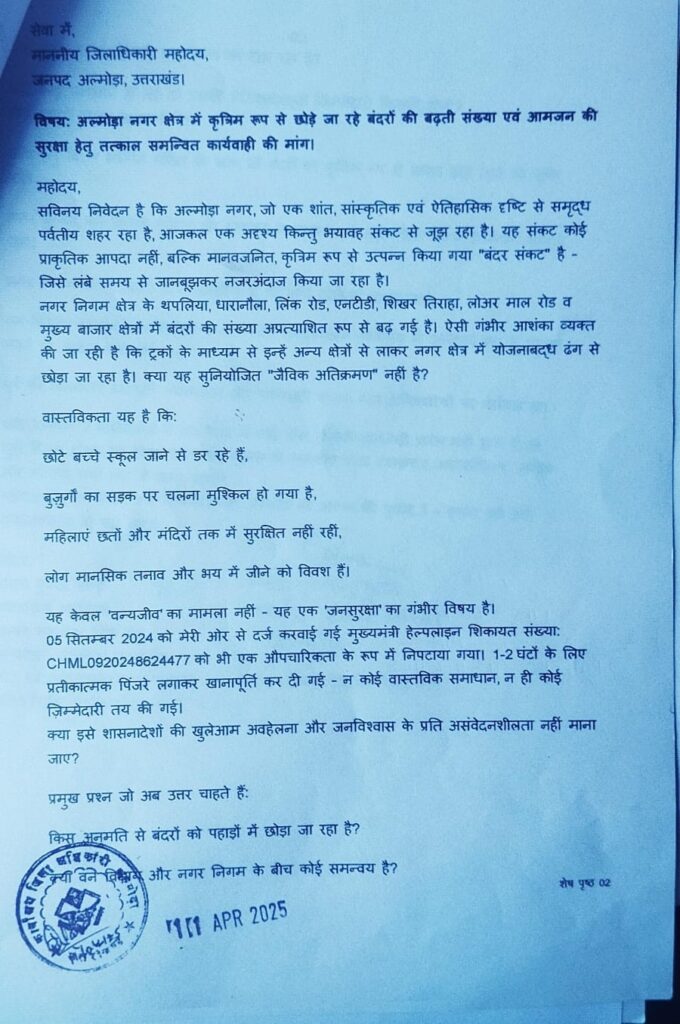 सेवा में,
माननीय जिलाधिकारी महोदय,
जनपद अल्मोड़ा, उत्तराखंड।
विषय: अल्मोड़ा नगर क्षेत्र में कृत्रिम रूप से छोड़े जा रहे बंदरों की बढ़ती संख्या एवं आमजन की
सुरक्षा हेतु तत्काल समन्वित कार्यवाही की मांग।
महोदय,
सविनय निवेदन है कि अल्मोड़ा नगर, जो एक शांत, सांस्कृतिक एवं ऐतिहासिक दृष्टि से समृद्ध
पर्वतीय शहर रहा है, आजकल एक अदृश्य किन्तु भयावह संकट से जूझ रहा है। यह संकट कोई
प्राकृतिक आपदा नहीं, बल्कि मानवजनित, कृत्रिम रूप से उत्पन्न किया गया "बंदर संकट" है -
जिसे लंबे समय से जानबूझकर नजरअंदाज किया जा रहा है।
नगर निगम क्षेत्र के थपलिया, धारानौला, लिंक रोड, एनटीडी, शिखर तिराहा, लोअर माल रोड व
मुख्य बाजार क्षेत्रों में बंदरों की संख्या अप्रत्याशित रूप से बढ़ गई है। ऐसी गंभीर आशंका व्यक्त
की जा रही है कि ट्रकों के माध्यम से इन्हें अन्य क्षेत्रों से लाकर नगर क्षेत्र में योजनाबद्ध ढंग से
छोड़ा जा रहा है। क्या यह सुनियोजित "जैविक अतिक्रमण" नहीं है?
वास्तविकता यह है कि:
छोटे बच्चे स्कूल जाने से डर रहे हैं,
बुज़ुर्गों का सड़क पर चलना मुश्किल हो गया है,
महिलाएं छतों और मंदिरों तक में सुरक्षित नहीं रहीं,
लोग मानसिक तनाव और भय में जीने को विवश हैं।
यह केवल 'वन्यजीव' का मामला नहीं - यह एक 'जनसुरक्षा' का गंभीर विषय है।
05 सितम्बर 2024 को मेरी ओर से दर्ज करवाई गई मुख्यमंत्री हेल्पलाइन शिकायत संख्या:
CHML0920248624477 को भी एक औपचारिकता के रूप में निपटाया गया। 1-2 घंटों के लिए
प्रतीकात्मक पिंजरे लगाकर खानापूर्ति कर दी गई - न कोई वास्तविक समाधान, न ही कोई
ज़िम्मेदारी तय की गई।
क्या इसे शासनादेशों की खुलेआम अवहेलना और जनविश्वास के प्रति असंवेदनशीलता नहीं माना
जाए?
प्रमुख प्रश्न जो अब उत्तर चाहते हैं:
किस अनुमति से बंदरों को पहाड़ों में छोड़ा जा रहा है?
क्या वन विभाग और नगर निगम के बीच कोई समन्वय है?
शेष पृष्ठ 02
कार्यालय जिला अधिकारी
11 APR 2025